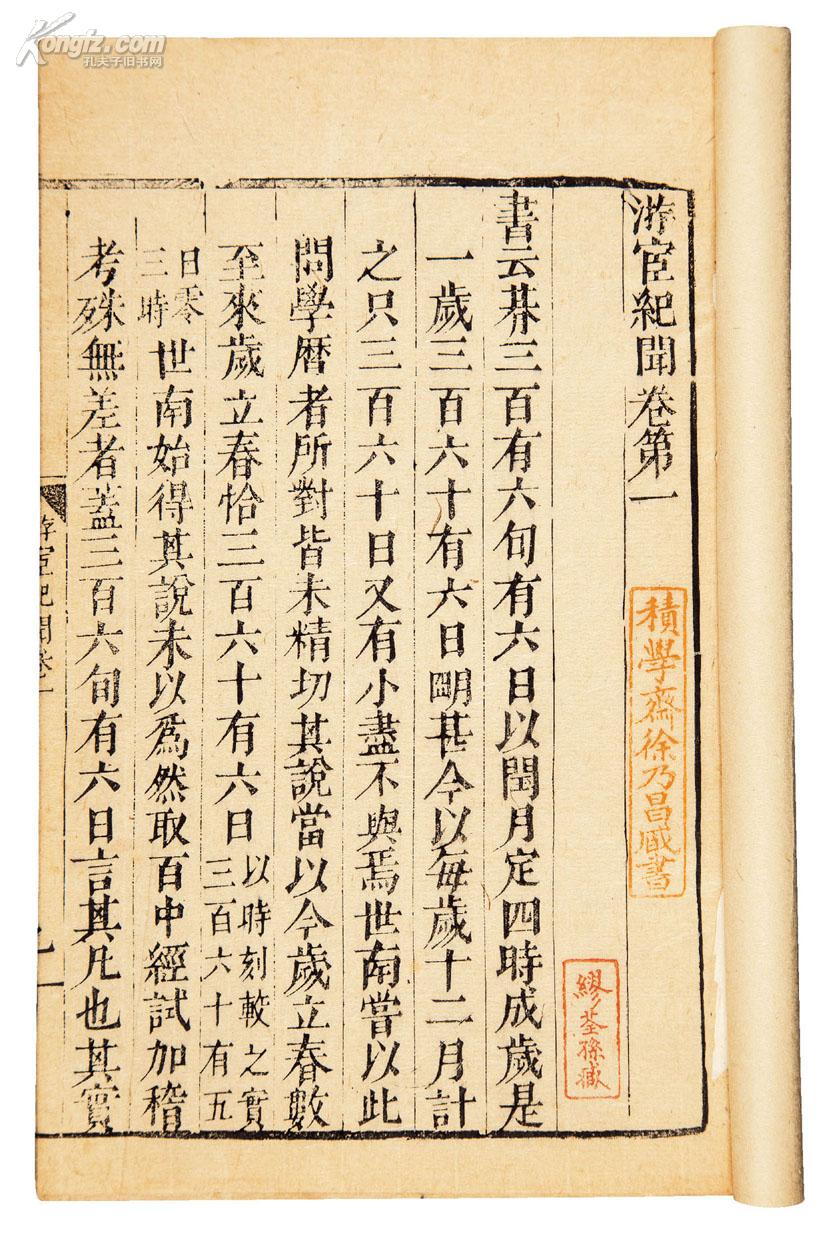 Kongfz.com
孔夫子旧书网
游宦紀聞卷第一
積學齋徐乃昌藏書
繆荃孫藏
書云朞三百有六旬有六日以閏月定四時成歲是
一歲三百六十有六日朙甚今以每歲十二月計
之只三百六十日又有小盡不與焉世南嘗以此
問學暦者所對皆未精切其說當以今歲立春數
至來歲立春恰三百六十有六日以時刻較之實三百六十有五
日零三時世南始得其說未以爲然取百中經試加稽
考殊無差者蓋三百六旬有六日言其凡也其實
游宦紀聞卷一